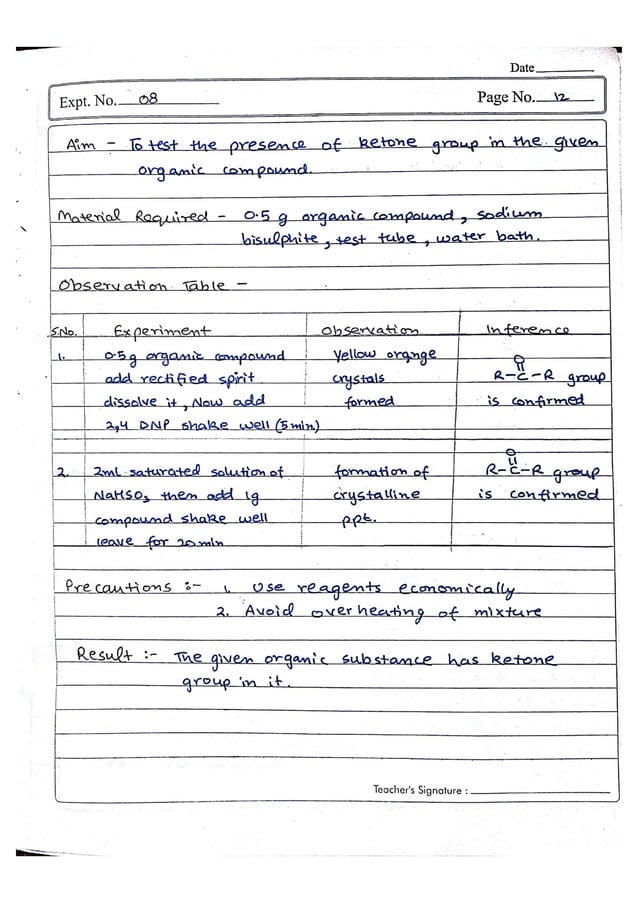 Date
Expt. No. 08
Page No. 12
Aim - To test the presence of ketone group in the given
organic compound.
Material Required - 0.5 g organic compound, sodium
bisulphite, test tube, water bath.
Observation Table -
S.No. Experiment Observation Inference
1. 0.5g organic compound Yellow orange O
add rectified spirit crystals R-C-R group
dissolve it, Now add formed is confirmed
2,4 DNP shake well (5 min)
O
2. 2mL saturated solution of formation of R-C-R group
NaHSO3 then add 1g crystalline is confirmed
compound shake well ppt.
leave for 20min
Precautions :- 1. Use reagents economically
2. Avoid over heating of mixture
Result :- The given organic substance has ketone
group in it.
Teacher's Signature :